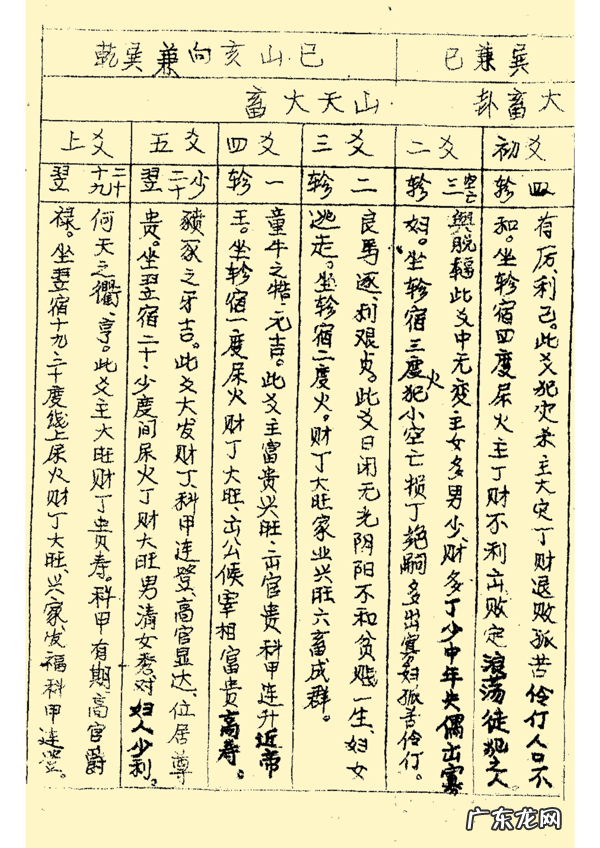 巽兼巳
巳山亥向兼巽乾
大畜卦
山天大畜
初爻
轸四
有厉,利己。此爻犯灾杀主大定丁财退败孤苦伶仃人口不
和。坐轸宿四度尿火主丁财不利出败定浪荡徒犯之人
二爻
轸三空亡
舆脱辐此爻中无变主女多男少,财多丁少中年失偶出寡
妇。坐轸宿三度火犯小空亡损丁绝嗣多出寡妇孤苦伶仃。
三爻
轸二
良馬逐,利艰贞。此爻日闲无光阴阳不和贫贱一生,妇女
逃走。坐轸宿二度火。财丁大旺家业兴旺六畜成群。
四爻
轸一
童牛之牿,元吉。此爻主富贵兴旺,出官贵科甲连升近帝
王。坐轸宿一度尿火财丁大旺,出公候宰相富贵高寿。
五爻
翌二十少
豮豕之牙吉。此爻大发财丁科甲连登,高官显达、位居尊
贵。坐翌宿二十,少度间尿火丁财大旺男清女秀对妇人少利。
上爻
翌十九二十
何天之衢,亨。此爻主大旺财丁贵寿。科甲有期高官爵
禄。坐翌宿十九、二十度线上尿火财丁大旺兴家发福科甲连登。
广东龙网